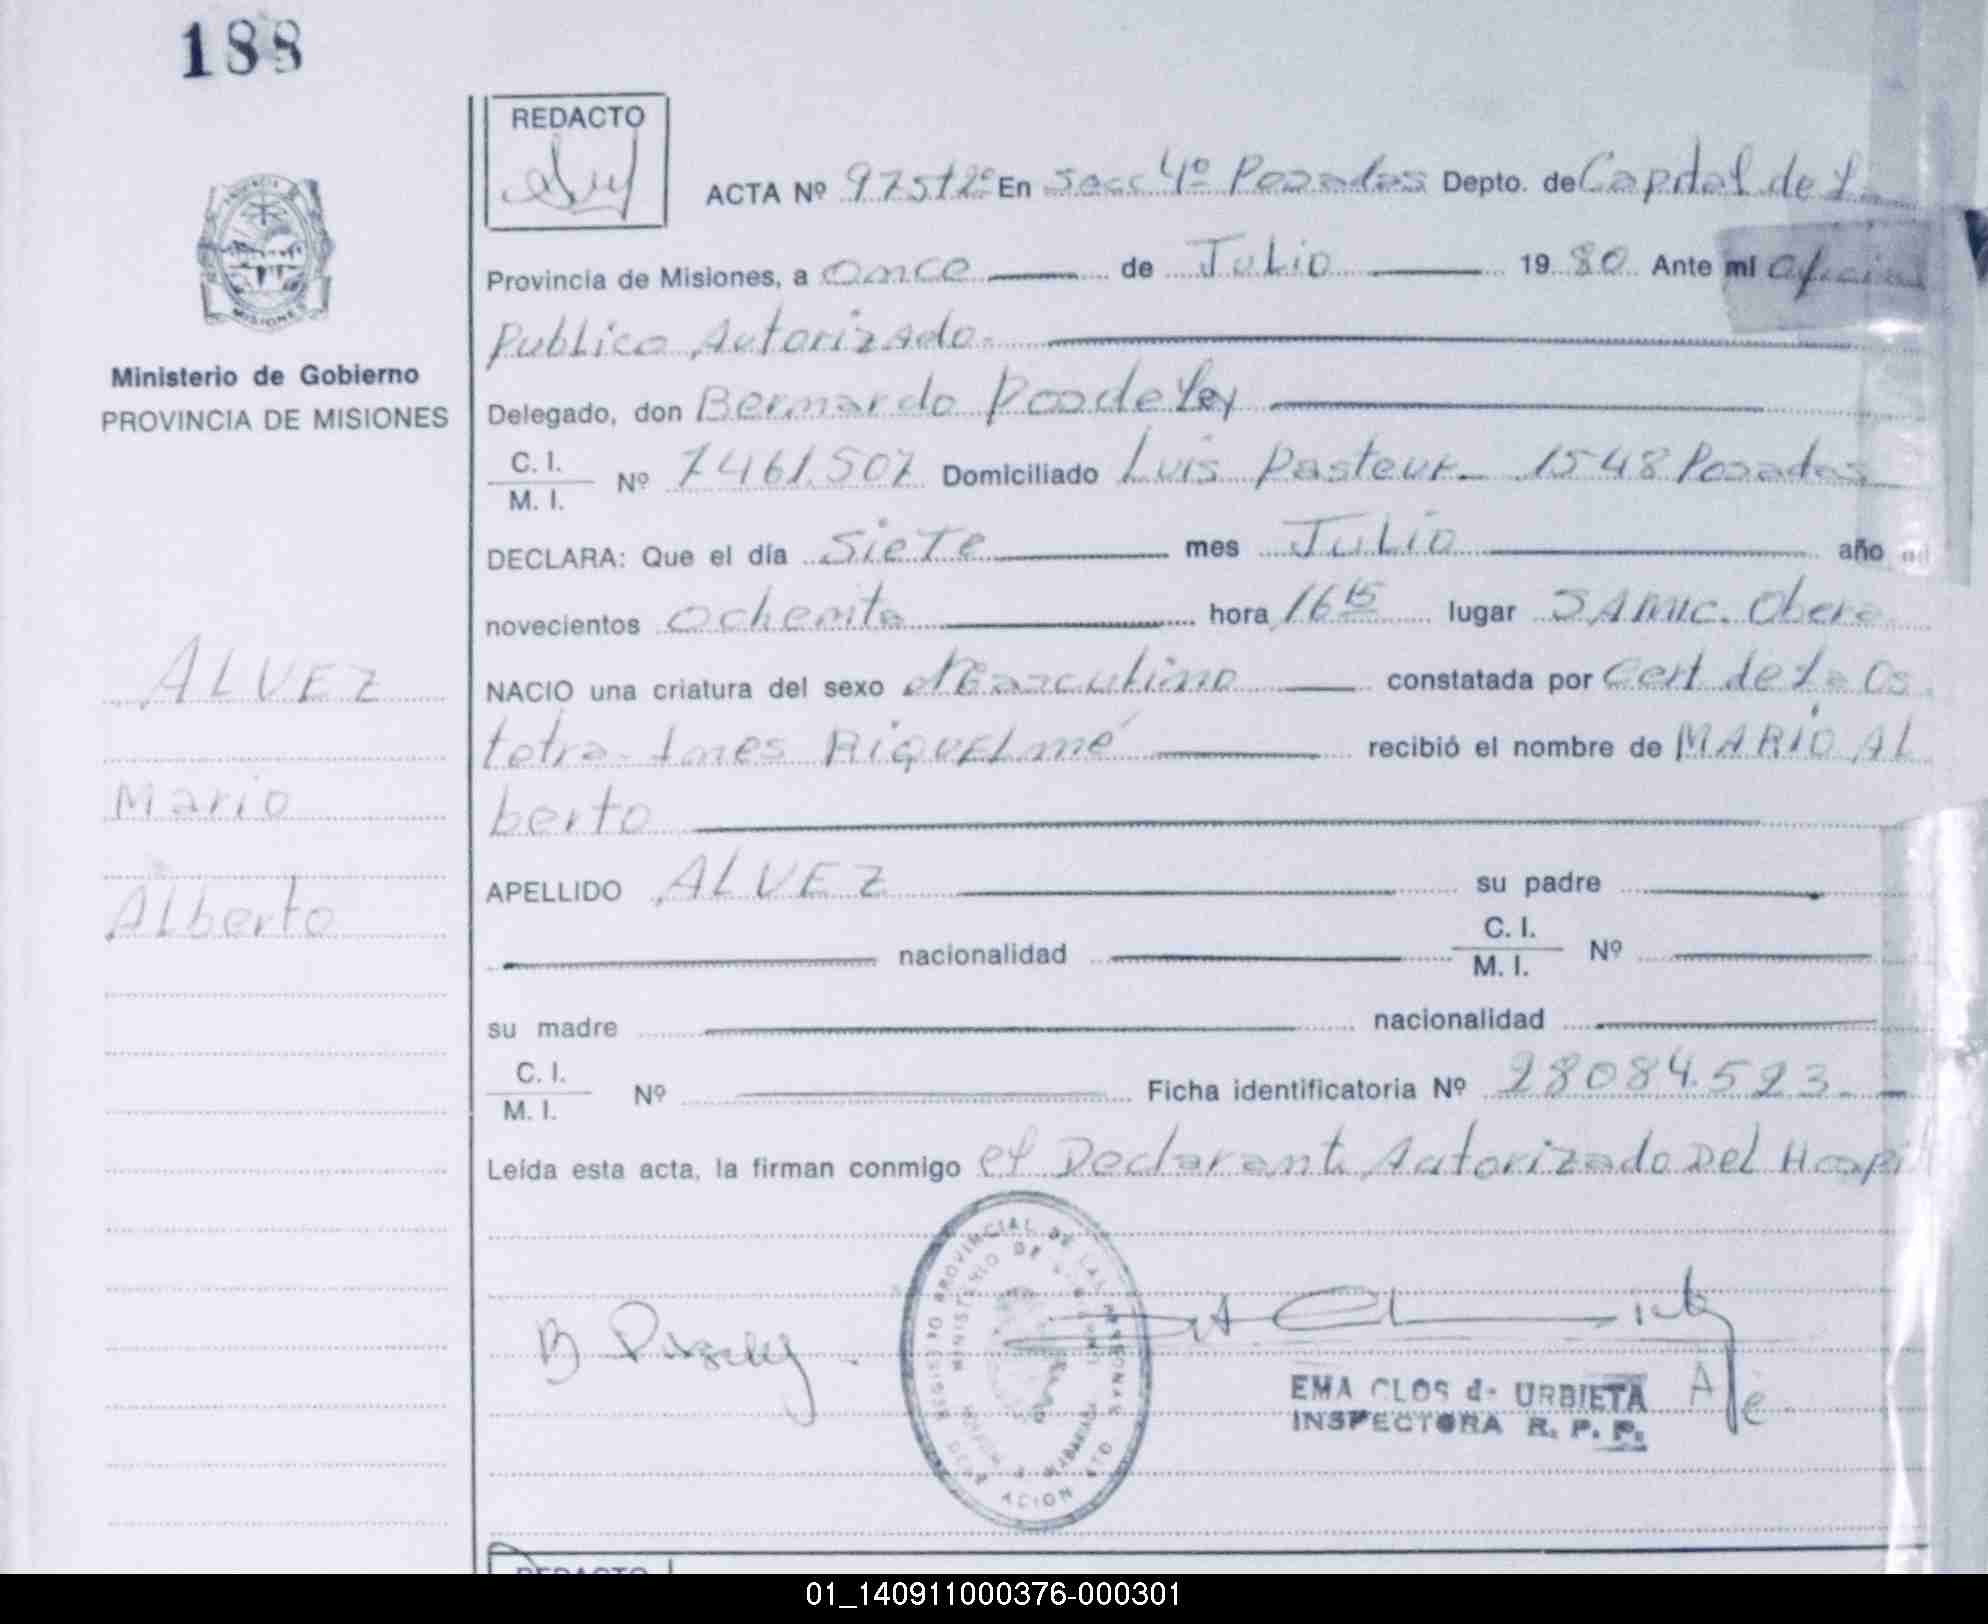 188
REDACTO
ACTA Nº 975 T2º En Secc 4º Posadas Depto. de Capital de La
Provincia de Misiones, a once de Julio 1980 Ante mi Oficial
Publico Autorizado.
Ministerio de Gobierno
PROVINCIA DE MISIONES
MISIONES
Delegado, don Bernardo
C. I.
M. I. Nº 7461.507 Domiciliado Luis Pasteur 1548 Posadas
DECLARA: Que el día Siete mes Julio año
novecientos ochenta hora 16 15 lugar SAMIC. Obera
ALVEZ
NACIO una criatura del sexo Masculino constatada por Cert de La Os
tetra Ines Riquelme recibió el nombre de MARIO AL
Mario
berto
Alberto
APELLIDO ALVEZ su padre
nacionalidad C. I.
M. I. Nº
su madre nacionalidad
C. I.
M. I. Nº Ficha identificatoria Nº 28084.523
Leída esta acta, la firman conmigo el Declarante Autorizado Del Hospit
REGISTRO PROVINCIAL DE LAS PERSONAS
MINISTERIO DE
EMA CLOS de URBIETA
INSPECTORA R. P. P.
REDACTO
01_140911000376-000301